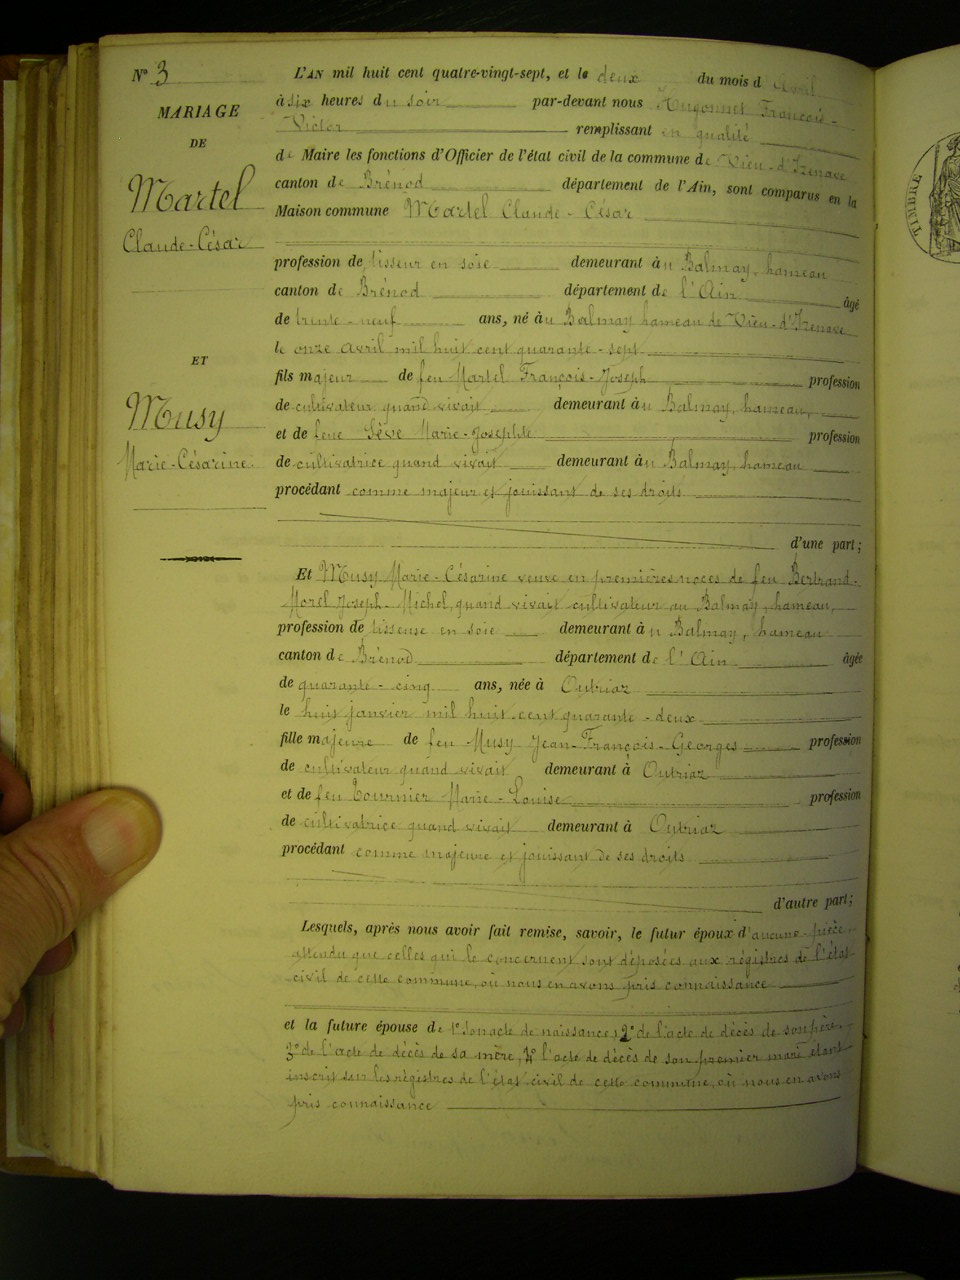 N° 3
MARIAGE
DE
Martel
Claude-César
ET
Musy
Marie-Césarine
L'AN mil huit cent quatre-vingt-sept, et le deux du mois d'Avril
à six heures du soir par-devant nous Hugonnet François-
Victor remplissant en qualité
de Maire les fonctions d'Officier de l'état civil de la commune de Vieu-d'Izenave
canton de Brénod département de l'Ain, sont comparus en la
Maison commune Martel Claude-César
profession de tisseur en soie demeurant à u Balmay, hameau
canton de Brénod département de l'Ain âgé
de trente-neuf ans, né à u Balmay hameau de Vieu-d'Izenave
le onze avril mil huit cent quarante-sept
fils majeur de feu Martel François-Joseph profession
de cultivateur quand vivait demeurant à u Balmay, hameau,
et de feue Sève Marie-Josephte profession
de cultivatrice quand vivait demeurant à u Balmay, hameau
procédant comme majeur et jouissant de ses droits
d'une part;
Et Musy Marie-Césarine veuve en premières noces de feu Bertrand-
Morel Joseph-Michel, quand vivait cultivateur au Balmay, hameau,
profession de tisseuse en soie demeurant à u Balmay, hameau
canton de Brénod département de l'Ain âgée
de quarante-cinq ans, née à Outriaz
le huit janvier mil huit cent quarante-deux
fille majeure de feu Musy Jean-François-Georges profession
de cultivateur quand vivait demeurant à Outriaz
et de feu Tournier Marie-Louise profession
de cultivatrice quand vivait demeurant à Outriaz
procédant comme majeure et jouissant de ses droits
d'autre part;
Lesquels, après nous avoir fait remise, savoir, le futur époux d'aucune pièce,
attendu que celles qui le concernent sont déposées aux régistres de l'état
civil de cette commune, où nous en avons pris connaissance
et la future épouse de 1° son acte de naissance, 2° de l'acte de décès de son père,
3° de l'acte de décès de sa mère, 4° l'acte de décès de son premier mari étant
inscrit sur les régistres de l'état civil de cette commune, où nous en avons
pris connaissance
TIMBRE